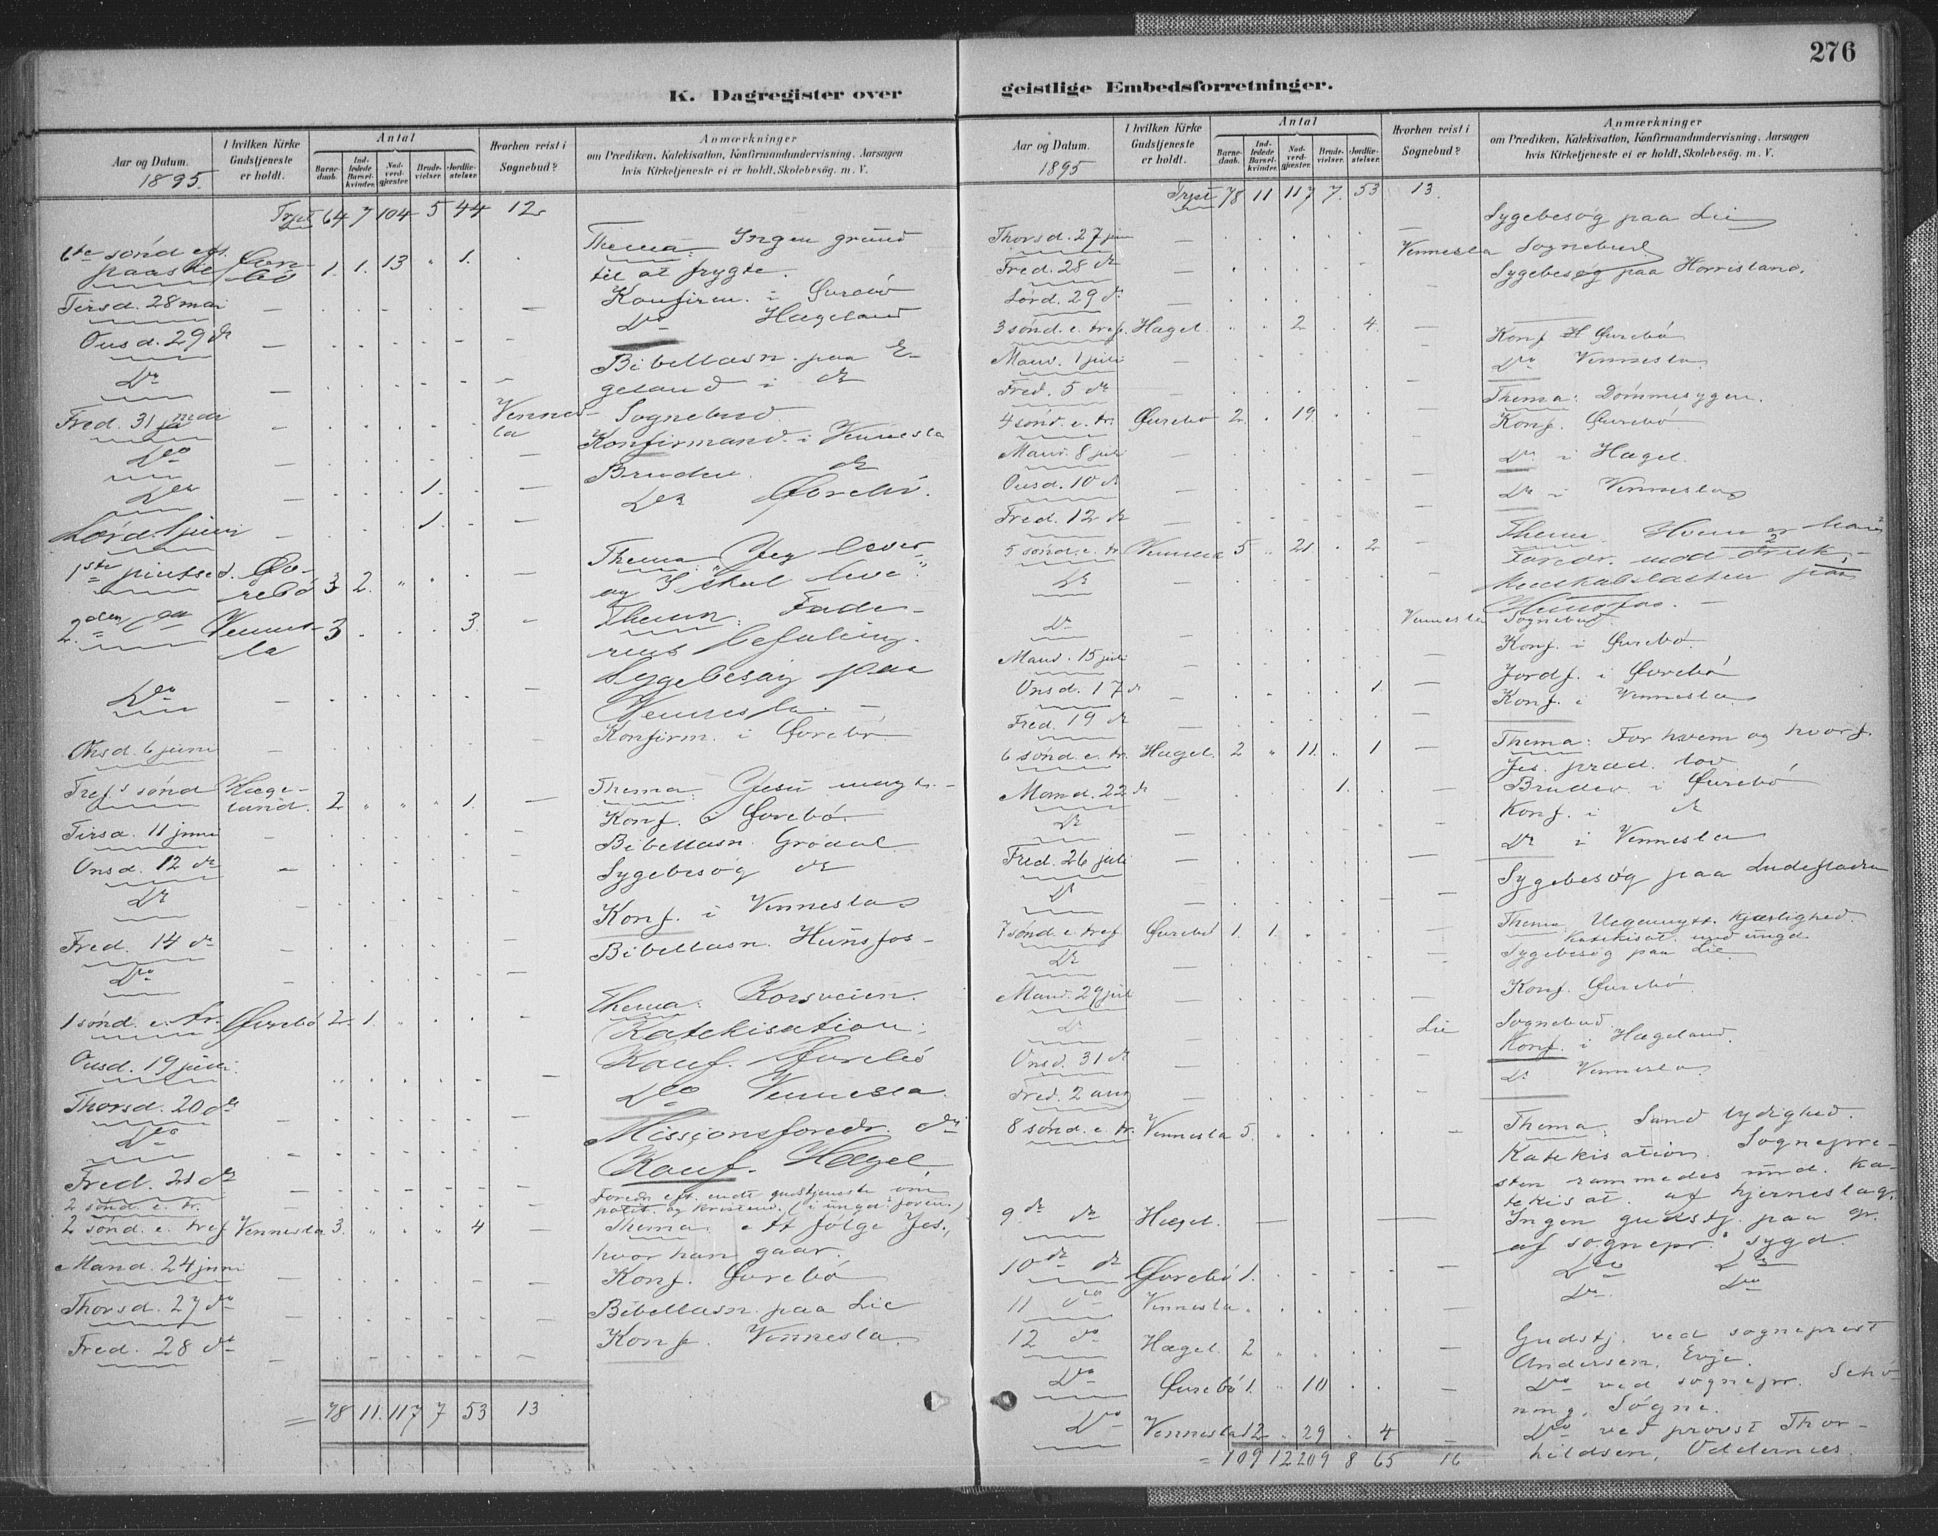 276
K. Dagregister over
Aar og Datum.
1895.
I hvilken Kirke Gudstjeneste er holdt.
Antal
Barne-daab.
Ind-ledede Barsel-kvinder.
Nad-verd-gjester.
Brude-vielser.
Jordfæ-stelser.
Hvorhen reist i Sognebud?
Anmærkninger
om Prædiken, Katekisation, Konfirmandundervisning, Aarsagen
hvis Kirketjeneste ei er holdt, Skolebesøg, m. V.
Trspt 64 7 104 5 44 12
6te sønd eft. paaske Øvre-bø 1. 1. 13 " 1. Thema: Ingen grund
til at frygte.
Tirsd. 28 mai — Konfirm. i Øvrebø
Onsd. 29 de — Do Hægeland
Do — Bibellæsn. paa E-
geland i do
Fred. 31 mai — Vennes-la Sognebud
Do — Konfirmand. i Vennesla
Do — 1. — Bruden do
Lørd. 1 juni 1. — Do Øvrebø.
1ste pintsed. Øv-rebø 3 2. " — Thema: "Jeg lever
og I skal leve".
2den do Vennes-la 3 3. — Thema: Fade-
rens befaling.
Do — Sygebesøg paa
Vennesla. —
Onsd. 6 juni — Konfirm. i Øvrebø
Tref.s sønd Hæge-land. 2 " " " 1. — Thema: Jesu magt. —
Tirsd. 11 juni — Konf. i Øvrebø.
Onsd. 12 de — Bibellæsn. Grødal
Do — Sygebesøg do
Fred. 14 de — Konf. i Vennesla
Do — Bibellæsn. Hunsfos —
1 sønd. e. tr. Øvrebø 2 1. — Thema: Korsveien.
Katekisation.
Onsd. 19 juni — Konf. Øvrebø
Thorsd. 20 de — Do Vennesla.
Do — Missionsforedr. do
Fred. 21 de — Konf. Hægel.
2 sønd. e. tr. Foredr. eft. endt gudstjeneste om
polit. og kristend. (i ungd. foren.)
2 sønd. e. tref Vennesla 3. " " " 4 — Thema: At følge Jes.,
hvor han gaar.
Mand. 24 juni — Konf. Øvrebø
Thorsd. 27 do — Bibellæsn. paa Lie
Fred. 28 de — Konf. Vennesla
= 78 11. 117 7 53 13
geistlige Embedsforretninger.
Aar og Datum.
1895
I hvilken Kirke Gudstjeneste er holdt.
Antal
Barne-daab.
Ind-ledede Barsel-kvinder.
Nad-verd-gjester.
Brude-vielser.
Jordfæ-stelser.
Hvorhen reist i Sognebud?
Anmærkninger
om Prædiken, Katekisation, Konfirmandundervisning, Aarsagen
hvis Kirketjeneste ei er holdt, Skolebesøg, m. V.
Trspt 78 11 117 7. 53 13.
Thorsd. 27 juni — Sygebesøg paa Lie
Fred. 28 de — Vennesla Sognebud
Lørd. 29 de — Sygebesøg paa Horrisland.
3 sønd. e. tref. Hægel. 2 4. —
Mand. 1 juli — Konf. Øvrebø
Fred. 5 de — Do Vennesla
4 sønd. e. tr. Øvrebø 2. 19. — Thema: Dømmesygen.
Mand. 8 juli — Konf. Øvrebø
Onsd. 10 de — Do i Hægel.
Fred. 12 de — Do i Vennesla
5 sønd. e. tr. Vennesla 5 " 21 2 — Thema: Hvem er
Do — Foredr. mod drik,
paa
Hunsfos. —
Do Vennesla Sognebud.
Mand. 15 juli — Konf. i Øvrebø.
Onsd. 17 de — 1. — Jordf. i Øvrebø
Fred. 19 de — Konf. i Vennesla
6 sønd. e. tr. Hægel. 2 " 11. 1 — Thema: For hvem og hvorf.
Jes. præd. lov
Mand. 22 de — 1. — Brudev. i Øvrebø
Do — Konf. i do
Fred. 26 juli — Do i Vennesla
Do — Sygebesøg paa
7 sønd. e. tref. Øvrebø 1. 1. — Thema: Uegennytt. kjærlighed.
Katekisat. med ungd.
Do — Sygebesøg paa Lie
Mand. 29 juli — Konf. Øvrebø.
Do Lie Sognebud
Onsd. 31 de — Konf. i Hægeland.
Fred. 2 aug — Do Vennesla
8 sønd. e. tr. Vennesla 5. — Thema: Sand lydighed.
Katekisation. Sognepre-
sten rammedes und. ka-
tekisat. af hjerneslag.
9. de do Hægel. — Ingen gudstj. paa gr.
af sognepr. sygd.
10de de Øvrebø 1. — Do Do
11 do Vennesla. Do. Do
12 do Hægel. 2 — Gudstj. ved sogneprest
Andersen, Evje.
Do Øvrebø 1. 10 — Do ved sognepr. Schø-
ning, Søgne.
Do Vennesla 12 29 4 — Do ved provst Thor-
kildsen, Oddernes.
= 109 12 209 8 65 16